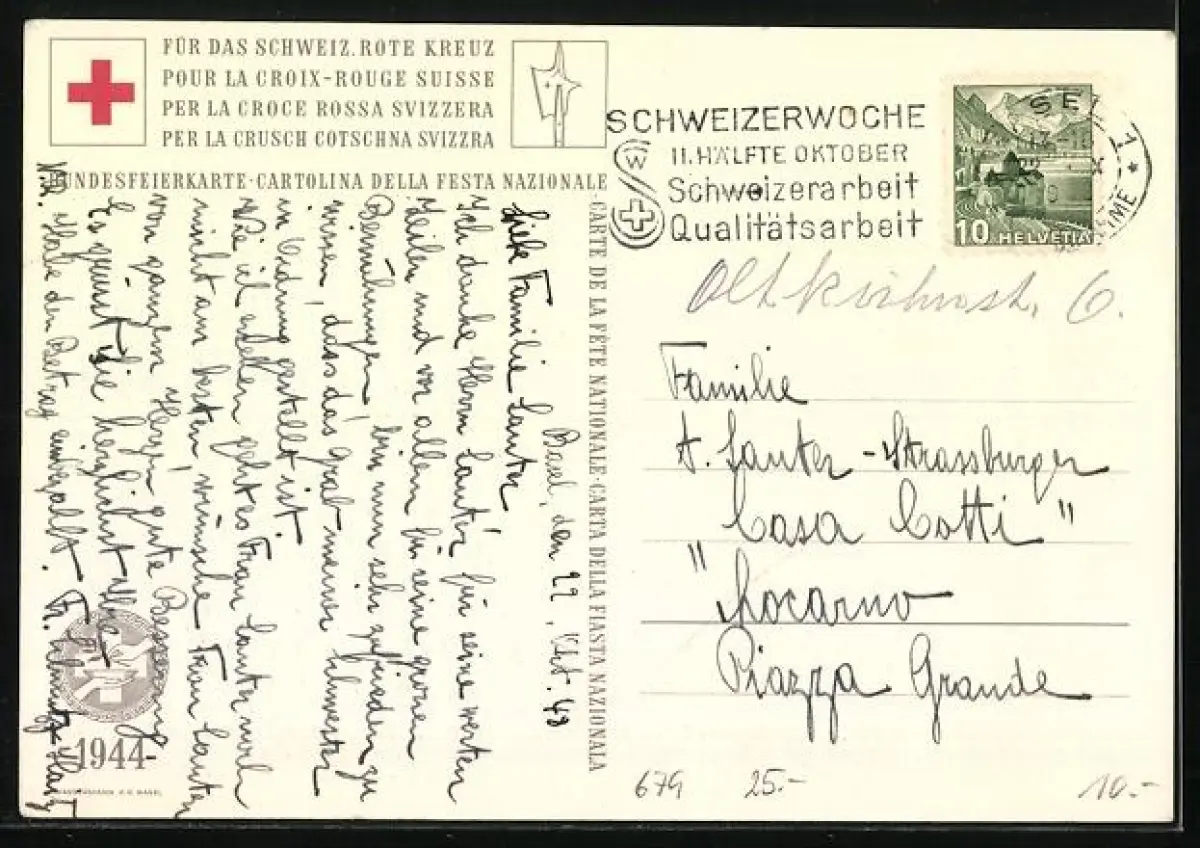 FÜR DAS SCHWEIZ. ROTE KREUZ
POUR LA CROIX-ROUGE SUISSE
PER LA CROCE ROSSA SVIZZERA
PER LA CRUSCH COTSCHNA SVIZZRA
BUNDESFEIERKARTE · CARTOLINA DELLA FESTA NAZIONALE
· CARTE DE LA FÊTE NATIONALE · CARTA DELLA FIASTA NAZIONALA
SCHWEIZERWOCHE
II. HÄLFTE OKTOBER
Schweizerarbeit
Qualitätsarbeit
W
SEL 1
10 HELVETIA
Basel, den 22. Okt. 48
Liebe Familie Lauter
Ich danke Herrn Lauter für seine werten
Zeilen und vor allem für seine grosen
Bemühungen, bin nun sehr zufrieden zu
wissen, dass das Grab meiner Schwester
in Ordnung gestellt ist.
Wie ich gehtes Frau Lauter noch
nicht am besten, wünsche Frau Lauter
von ganzem Herzen gute Besserung
Es grüsst Sie herzlichst Ihre
Fr. Schmutz-Hart
NB. Habe den Betrag einbezalt.
1944
Familie
A. Lauter-Strassburger
"Casa Cotti"
Locarno
Piazza Grande
679 25.- 10.-